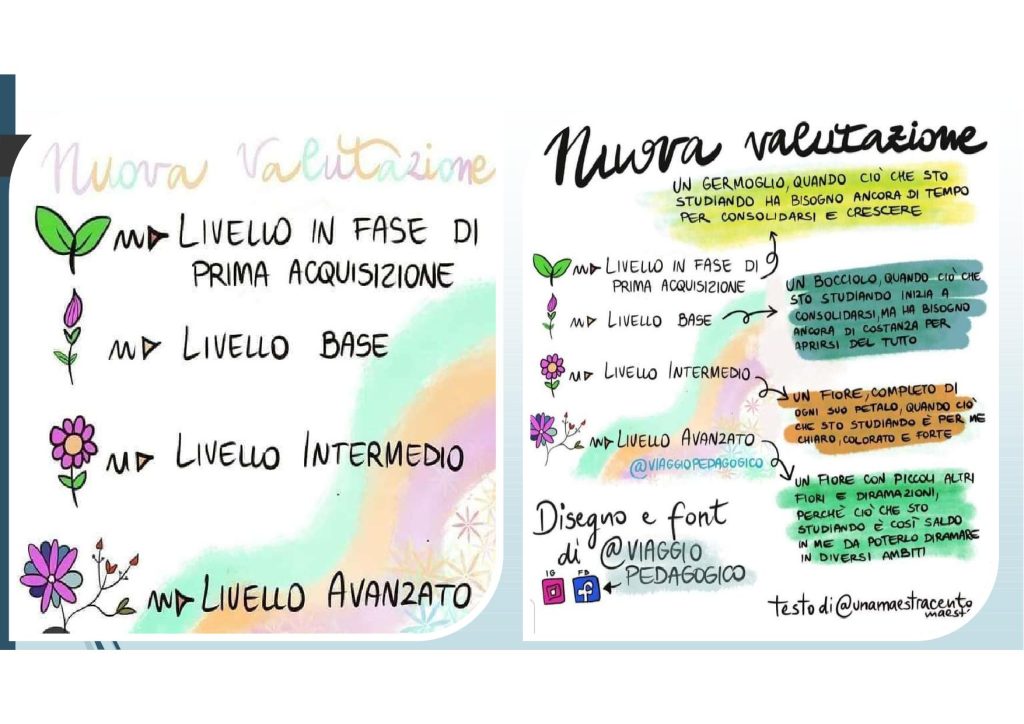 Nuova Valutazione
LIVELLO IN FASE DI
PRIMA ACQUISIZIONE
LIVELLO BASE
LIVELLO INTERMEDIO
LIVELLO AVANZATO
Nuova valutazione
UN GERMOGLIO, QUANDO CIÒ CHE STO
STUDIANDO HA BISOGNO ANCORA DI TEMPO
PER CONSOLIDARSI E CRESCERE
LIVELLO IN FASE DI
PRIMA ACQUISIZIONE
UN BOCCIOLO, QUANDO CIÒ CHE
STO STUDIANDO INIZIA A
CONSOLIDARSI, MA HA BISOGNO
ANCORA DI COSTANZA PER
APRIRSI DEL TUTTO
LIVELLO BASE
LIVELLO INTERMEDIO
UN FIORE, COMPLETO DI
OGNI SUO PETALO, QUANDO CIÒ
CHE STO STUDIANDO È PER ME
CHIARO, COLORATO E FORTE
LIVELLO AVANZATO
@VIAGGIOPEDAGOGICO
UN FIORE CON PICCOLI ALTRI
FIORI E DIRAMAZIONI,
PERCHÈ CIÒ CHE STO
STUDIANDO È COSÌ SALDO
IN ME DA POTERLO DIRAMARE
IN DIVERSI AMBITI
Disegno e font
di @VIAGGIO
PEDAGOGICO
IG FB
testo di @unamaestracento
maest.